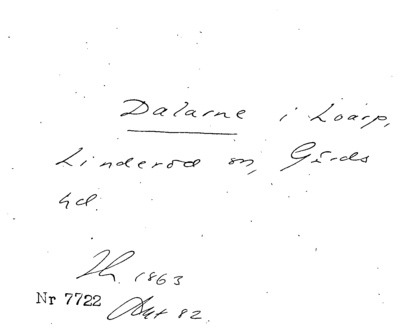 Dalarne i Loarp,
Linderöd sn, Gärds
hd.
Th. 1863
Nr 7722 Avt 82.